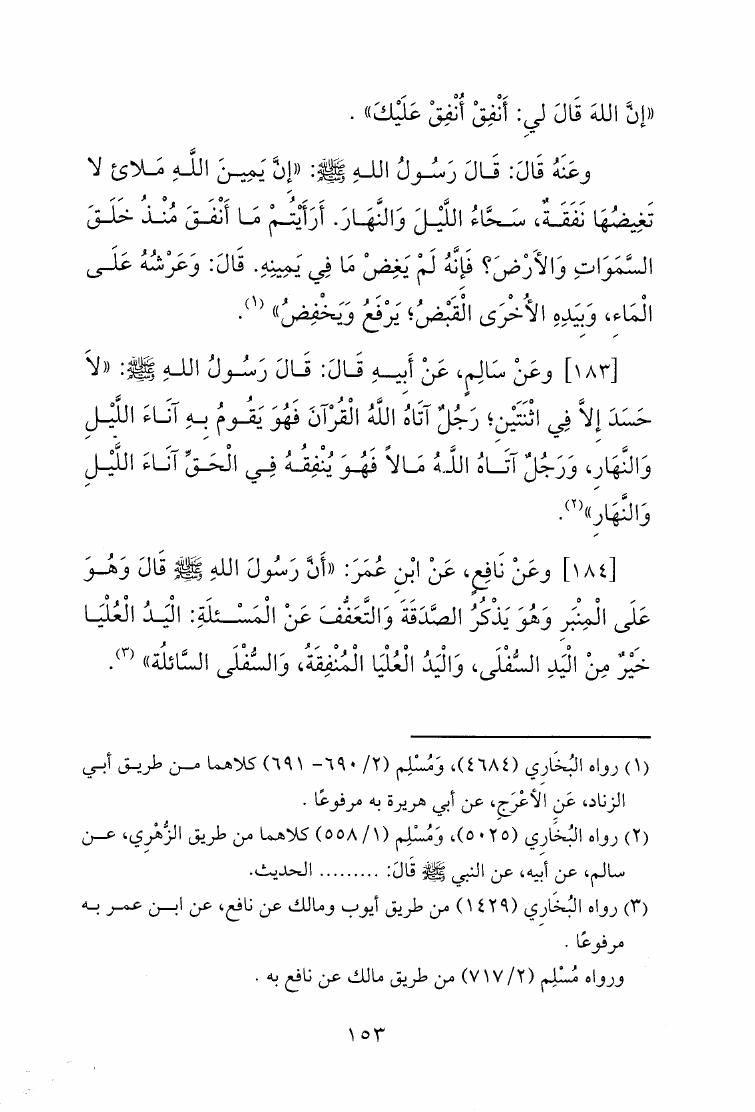 «إنَّ اللهَ قَالَ لي: أَنْفِقْ أُنْفِقْ عَلَيْكَ» .
وعَنهُ قَالَ: قَـالَ رَسُـولُ اللـهِ ﷺ: «إنَّ يَمِيـنَ اللَّـهِ مَـلائ لا
تَغِيضُهَا نَفَقَـةٌ، سَـحَّاءُ اللَّيْـلَ وَالنَّهَـارَ. أَرَأَيْتُـمْ مَـا أَنْفَـقَ مُنْـذُ خَلَـقَ
السَّمَوَاتِ وَالأَرْضَ؟ فَإِنَّهُ لَمْ يَغِضْ مَا فِي يَمِينِهِ. قَالَ: وَعَرْشُهُ عَلَـى
الْمَاءِ، وَبَيَدِهِ الأُخْرَى الْقَبْضُ؛ يَرْفَعُ وَيَخْفِضُ» (١).
[١٨٣] وعَنْ سَالِمٍ، عَنْ أَبيـهِ قَـالَ: قَـالَ رَسُـولُ اللـهِ ﷺ: «لاَ
حَسَدَ إلاَّ فِي اثْنَتَيْنِ؛ رَجُلٌ آتَاهُ اللَّهُ الْقُرْآنَ فَهُوَ يَقُـومُ بـهِ آنَـاءَ اللَّيْـلِ
وَالنَّهَارِ، وَرَجُلٌ آتَـاهُ اللـهُ مَـالاً فَهُـوَ يُنْفِقُـهُ فِـي الْحَـقِّ آنَاءَ اللَّيْـلِ
وَالنَّهَارِ»(٢).
[١٨٤] وعَنْ نَافِعٍ، عَنْ ابْنِ عُمَرَ: «أَنَّ رَسُولَ اللهِ ﷺ قَالَ وَهُـوَ
عَلَى الْمِنْبَرِ وَهُوَ يَذْكُرُ الصَّدَقَةَ وَالتَّعَفُّفَ عَنْ الْمَسْـئلَةِ: الْيَـدُ الْعُلْيَـا
خَيْرٌ مِنْ الْيَدِ السُّفْلَى، وَالْيَدُ الْعُلْيَا الْمُنْفِقَةُ، وَالسُّفْلَى السَّائلَة» (٣).
(١) رواه البُخَاري (٤٦٨٤)، وَمُسْلِم (٢/ ٦٩٠- ٦٩١) كلاهما مـن طريـق أبـي
الزناد، عَنِ الأَعْرَج، عن أبي هريرة به مرفوعًا .
(٢) رواه البُخَاري (٥٠٢٥)، وَمُسْلِم (١/ ٥٥٨) كلاهما من طريق الزُّهْري، عـن
سالم، عن أبيه، عن النبي ﷺ قَالَ: ......... الحديث.
(٣) رواه البُخَاري (١٤٢٩) من طريق أيوب ومالك عن نافع، عن ابـن عمـر بـه
مرفوعًا .
ورواه مُسْلِم (٢/ ٧١٧) من طريق مالك عن نافع به .
١٥٣